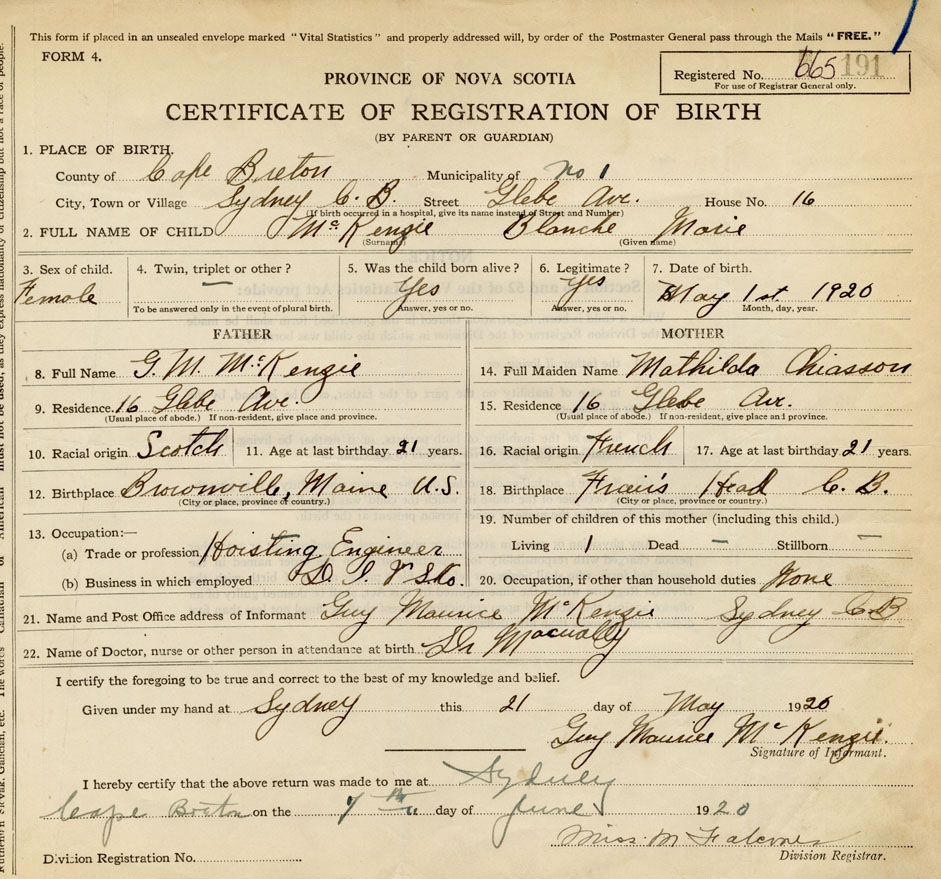 This form if placed in an unsealed envelope marked "Vital Statistics" and properly addressed will, by order of the Postmaster General pass through the Mails "FREE."
FORM 4.
Registered No. 665 191
For use of Registrar General only.
PROVINCE OF NOVA SCOTIA
CERTIFICATE OF REGISTRATION OF BIRTH
(BY PARENT OR GUARDIAN)
1. PLACE OF BIRTH.
County of Cape Breton Municipality of No 1
City, Town or Village Sydney C. B. Street Glebe Ave. House No. 16
(If birth occurred in a hospital, give its name instead of Street and Number)
2. FULL NAME OF CHILD McKenzie Blanche Marie
(Surname) (Given name)
3. Sex of child. Female
4. Twin, triplet or other? —
To be answered only in the event of plural birth.
5. Was the child born alive? Yes
Answer, yes or no.
6. Legitimate? Yes
Answer, yes or no.
7. Date of birth. May 1st 1920
Month, day, year.
FATHER
8. Full Name G. M. McKenzie
9. Residence. 16 Glebe Ave.
(Usual place of abode.) If non-resident, give place and province.
10. Racial origin Scotch 11. Age at last birthday 21 years.
12. Birthplace Brownville, Maine U.S.
(City or place, province or country.)
13. Occupation:—
(a) Trade or profession Hoisting Engineer
(b) Business in which employed D. I. & S. Co.
MOTHER
14. Full Maiden Name Mathilda Chiasson
15. Residence 16 Glebe Ave.
(Usual place of abode.) If non-resident, give place and province.
16. Racial origin French 17. Age at last birthday 21 years.
18. Birthplace Head C. B.
(City or place, province or country.)
19. Number of children of this mother (including this child.)
Living 1 Dead — Stillborn —
20. Occupation, if other than household duties None
21. Name and Post Office address of Informant Guy Maurice McKenzie Sydney C.B
22. Name of Doctor, nurse or other person in attendance at birth Dr
I certify the foregoing to be true and correct to the best of my knowledge and belief.
Given under my hand at Sydney this 21 day of May 1920
Guy Maurice McKenzie.
Signature of Informant.
I hereby certify that the above return was made to me at Sydney
Cape Breton on the 7th day of June 1920
Miss M
Division Registration No.
Division Registrar.